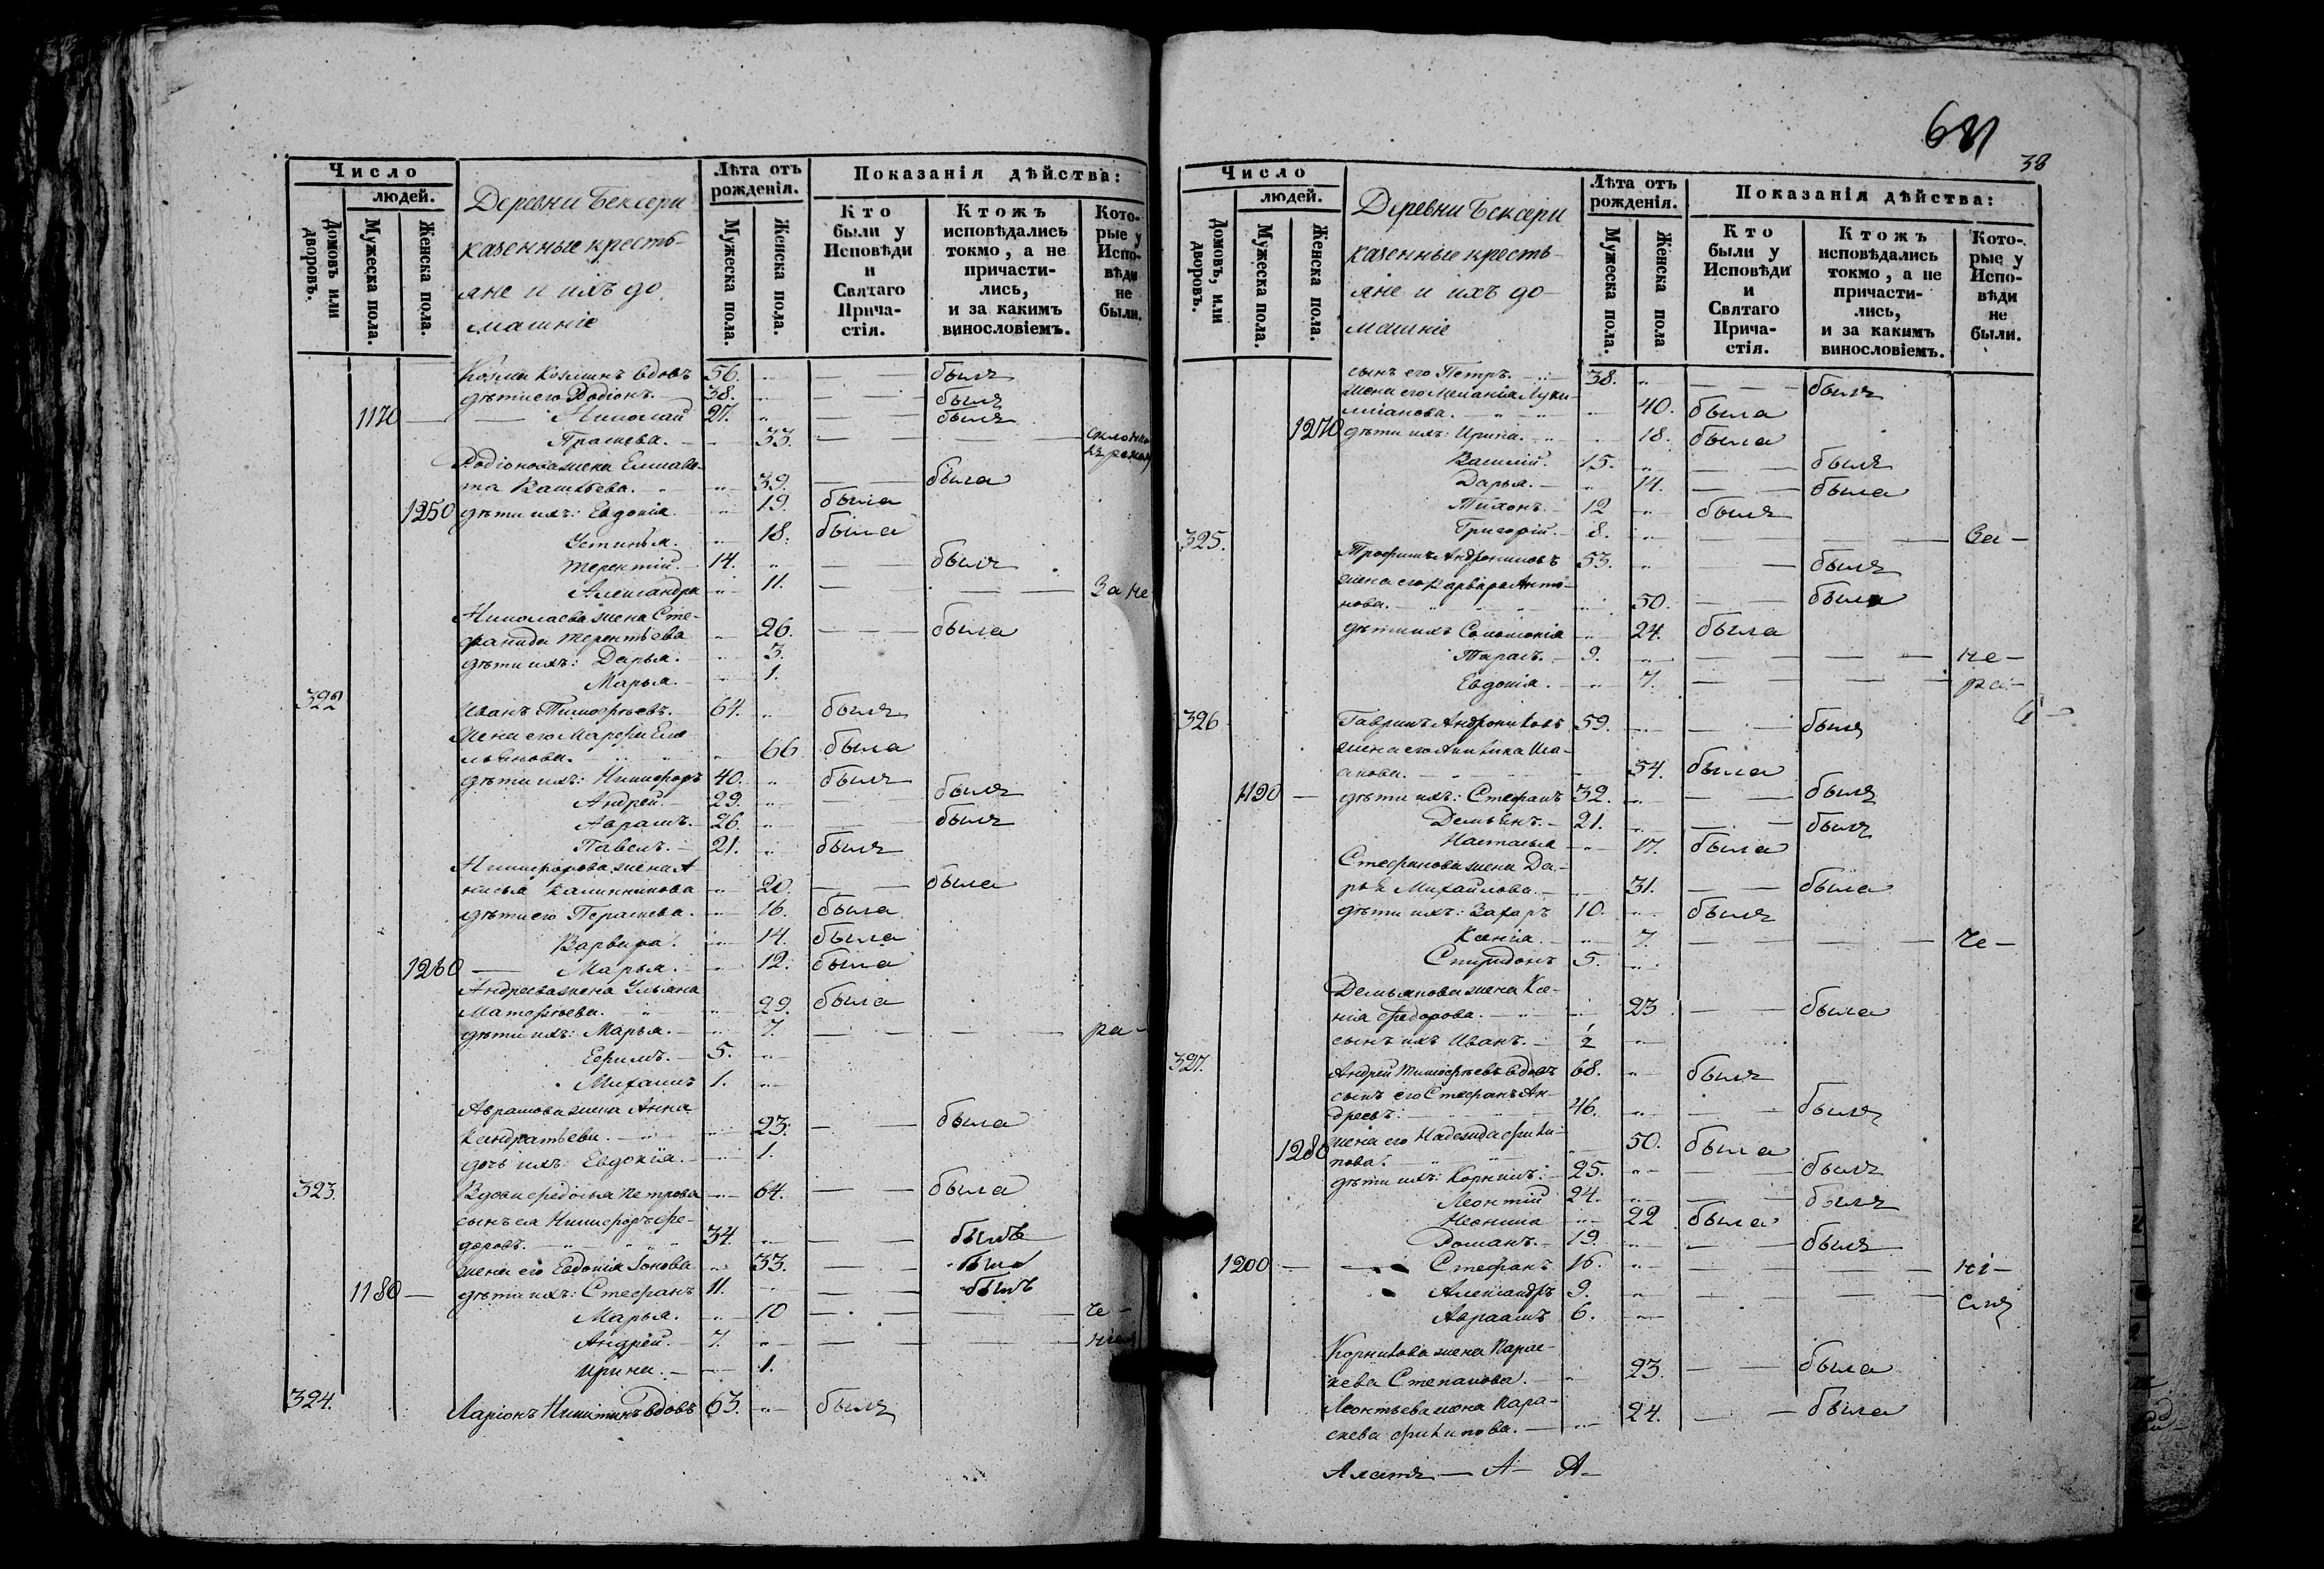 Число
людей.
Домовъ или дворовъ.
Мужеска пола.
Женска пола.
Деревни Бексери
казенные кресть-
яне и ихъ до
машніе
Лѣта отъ рожденія.
Мужеска пола.
Женска пола.
Показанія дѣйства:
Кто были у Исповѣди и Святаго Прича-стія.
Ктожъ исповѣдались токмо, а не причасти-лись, и за какимъ винословіемъ.
Кото-рые у Испо-вѣди не были.
Козма Козминъ вдовъ 56. былъ
дѣти его Родіонъ. 38. былъ
1170 Николай 27. былъ
33.
Родіонова жена Елисаве-
та Васильева. 39. была
1250 дѣти ихъ: Евдокія. 19. была
Устинья. 18. была
Терентій. 14. былъ
Александра 11. За не
Николаева жена Сте-
фанида Терентьева 26. была
дѣти ихъ: Дарья. 3.
Марья. 1.
322 Иванъ Тимофѣевъ. 64. былъ
жена его Марфа Еме-
льянова. 66 была
дѣти ихъ: Никифоръ 40. былъ
Андрей. 29. былъ
Аврамъ. 26. былъ
Павелъ. 21. былъ
Никифорова жена А-
нисья Калинникова 20. была
дѣти его 16. была
Варвара. 14. была
1260 Марья. 12. была
Андреева жена Ульяна
Матофѣева. 29. была
дѣти ихъ: Марья. 7. ра-
Ефимъ. 5.
Михаилъ 1.
Аврамова жена Анна
Кандратьева. 23. была
дочь ихъ: Евдокія. 1.
323. Вдова Федосья Петрова 64. была
сынъ ея Никифоръ Фе-
доровъ. 34. былъ
жена его Евдокія Іонова 33. была
1180 дѣти ихъ: Стефанъ 11. былъ
Марья. 10 че-
Андрей. 7.
Ирина. 1.
324. Ларіонъ Никитинъ вдовъ 63. былъ
681
38
Число
людей.
Домовъ, или дворовъ.
Мужеска пола.
Женска пола.
Деревни Бексери
казенные кресть-
яне и ихъ до
машніе
Лѣта отъ рожденія.
Мужеска пола.
Женска пола
Показанія дѣйства:
Кто были у Исповѣди и Святаго Прича-стія.
Ктожъ исповѣдались токмо, а не причасти-лись, и за какимъ винословіемъ.
Кото-рые у Испо-вѣди не были.
сынъ его Петръ. 38. былъ
жена его Меланія
40. была
1270 дѣти ихъ: Ирина. 18. была
Василій. 15. былъ
Дарья. 14. была
Тихонъ. 12 былъ
Григорій. 8. За-
325. Трофимъ Андрониковъ 53. былъ
жена его Варвара Анто-
нова. 50. была
дѣти ихъ Соломонія 24. была
Тарасъ. 9. не-
Евдокія. 7. ра-
326 Гаврилъ Андрониковъ 59. былъ
жена его
54. была
1190 дѣти ихъ: Стефанъ 32. былъ
Демьянъ. 21. былъ
Наталья 17. была
Стефанова жена Да-
рья Михайлова. 31. была
дѣти ихъ: Захаръ 10. былъ
Ксенія. 7. че-
Спиридонъ 5.
Демьянова жена Ксе-
нія Федорова. 23 была
сынъ ихъ Иванъ. 1/2
327. Андрей Тимофѣевъ вдовъ 68. былъ
сынъ его Стефанъ Ан-
дреевъ: 46. былъ
1280 жена его Надежда Фили-
пова. 50. была
дѣти ихъ: Корнилъ: 25. былъ
Леонтій 24. былъ
22 была
Романъ. 19. былъ
1200 Стефанъ 16. ні-
Александръ 9.
Авраамъ 6.
Корнилова жена Парас-
кева Степанова. 23. была
Леонтьева жена Пара-
скева Филипова. 24. была